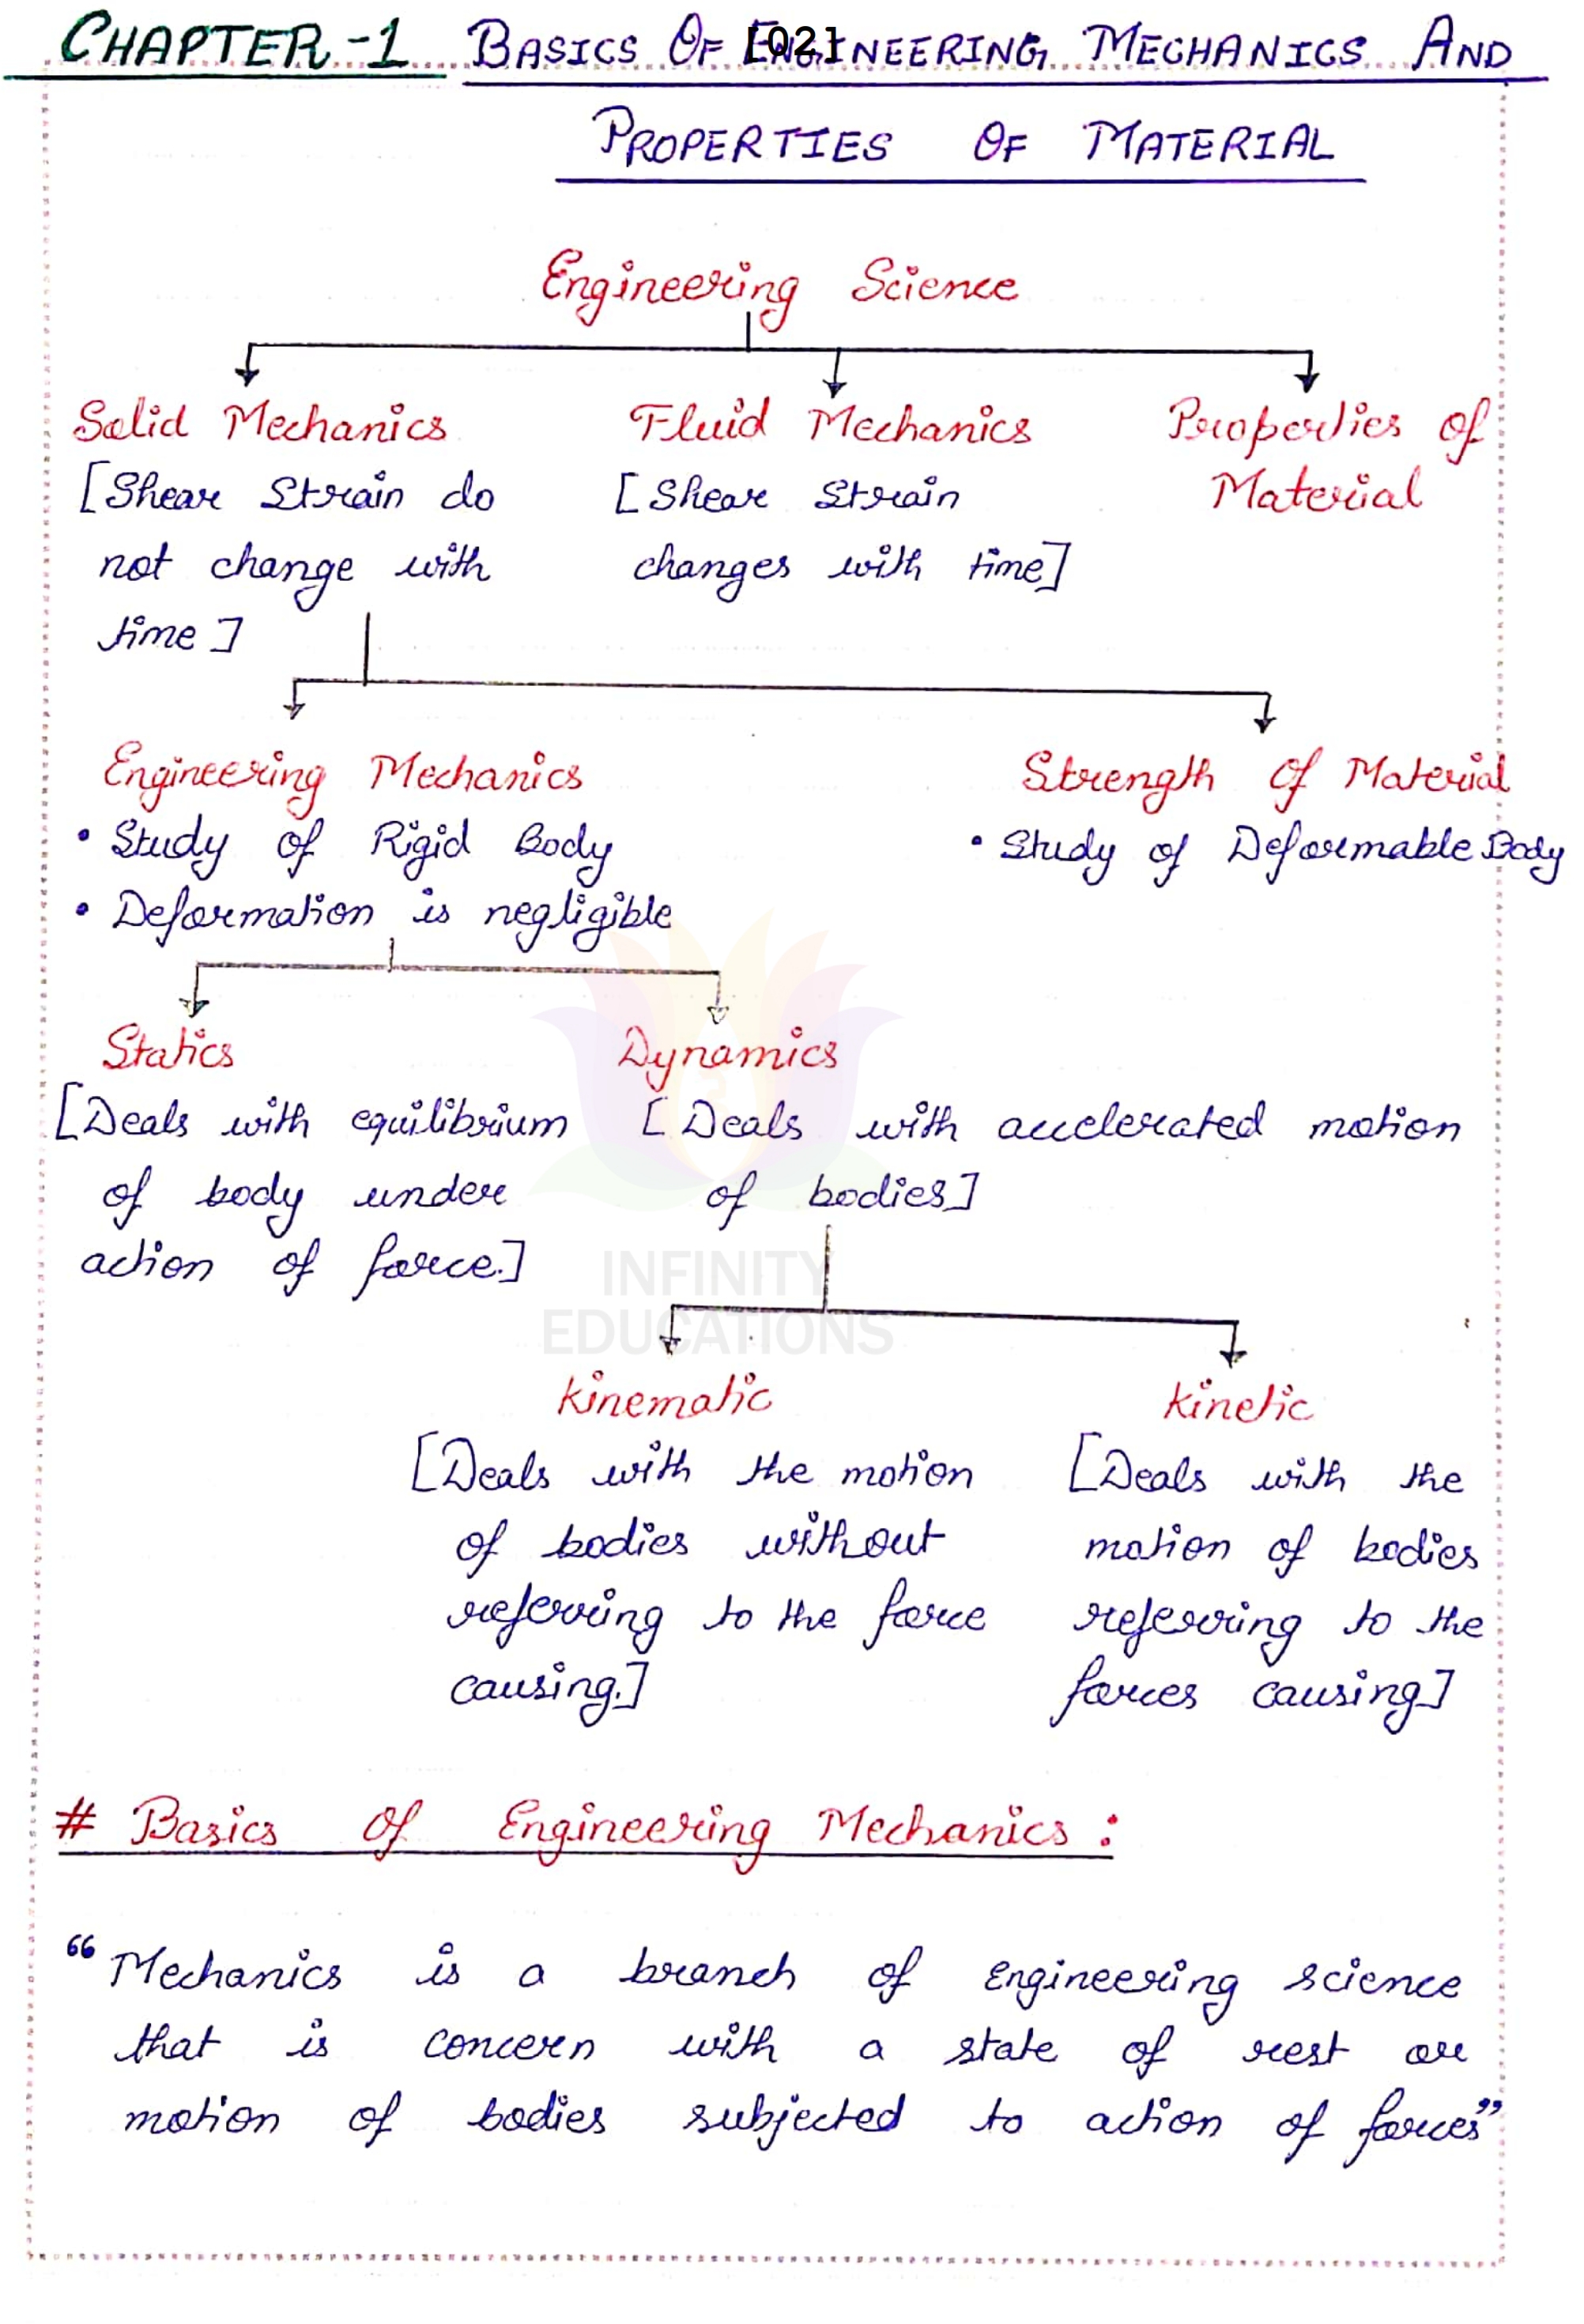 CHAPTER-1 BASICS OF ENGINEERING MECHANICS AND
[02]
PROPERTIES OF MATERIAL
Engineering Science
Solid Mechanics
[Shear Strain do
not change with
time]
Fluid Mechanics
[Shear Strain
changes with time]
Properties of
Material
Engineering Mechanics
• Study of Rigid Body
• Deformation is negligible
Strength Of Material
• Study of Deformable Body
Statics
[Deals with equilibrium
of body under
action of force.]
Dynamics
[Deals with accelerated motion
of bodies]
INFINITY
EDUCATIONS
Kinematic
[Deals with the motion
of bodies without
referring to the force
causing.]
Kinetic
[Deals with the
motion of bodies
referring to the
forces causing]
# Basics Of Engineering Mechanics :
“Mechanics is a branch of engineering science
that is concern with a state of rest or
motion of bodies subjected to action of forces”